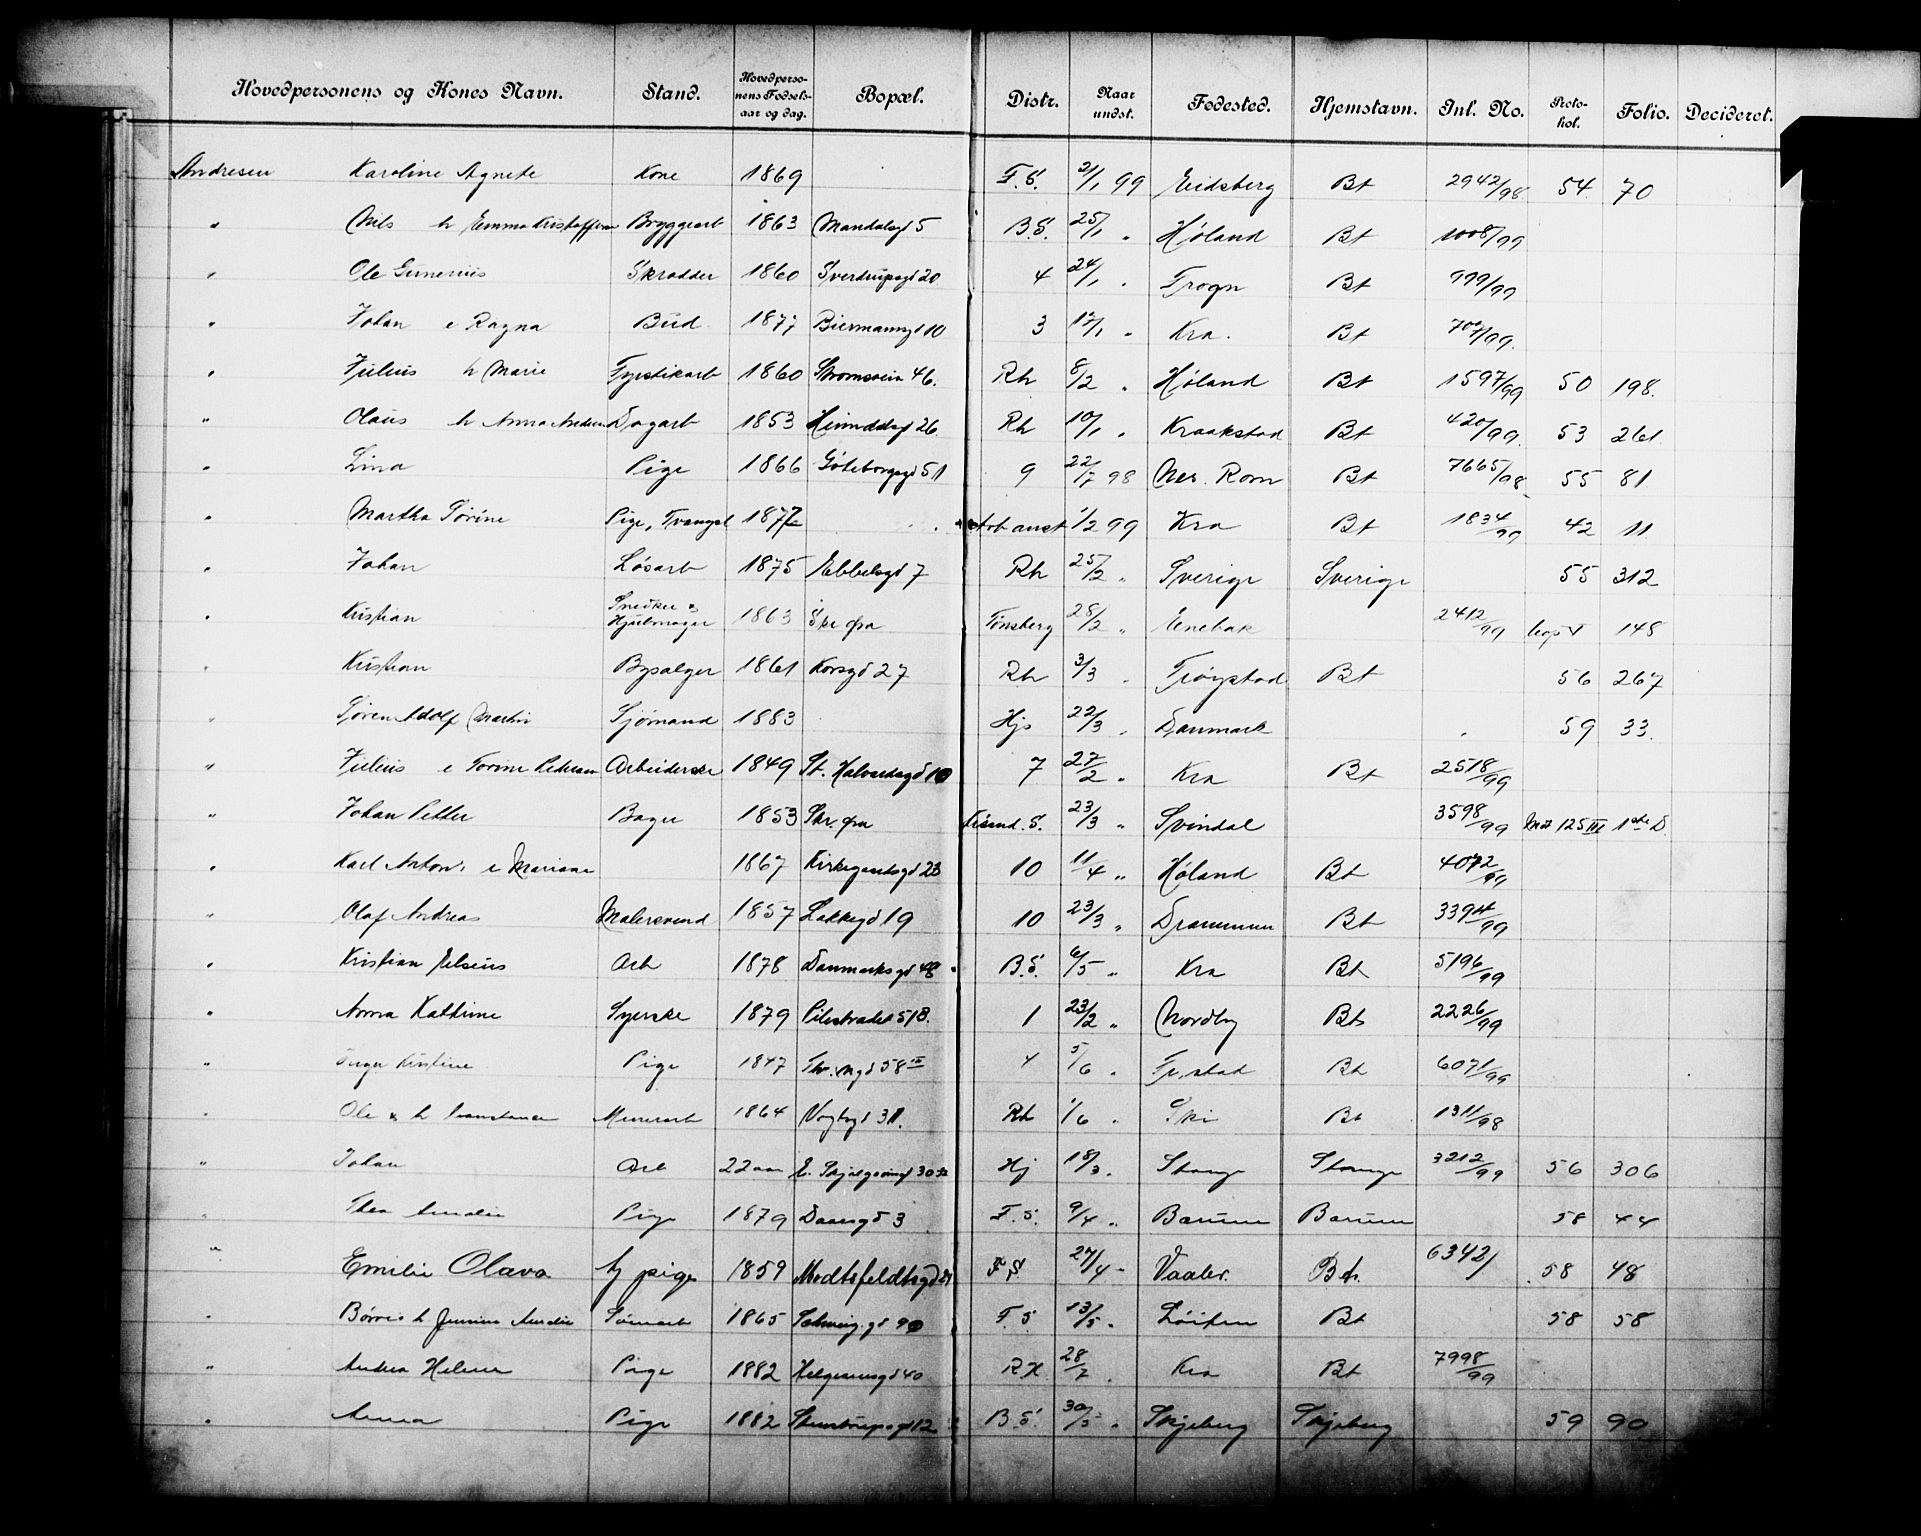 Hovedpersonens og Kones Navn. Stand. Hovedperso-nens Fødsels-aar og dag. Bopæl. Distr. Naar undst. Fødested. Hjemstavn. Inl. No. Proto-kol. Folio. Decideret.
Andresen Karoline Agnete Kone 1869 F.S. 2/1 99 Eidsberg Bt 2942/98 54 70
" Nils h Emma Kristoffersen Bryggearb 1863 Mandalsgd 5 B.S. 25/1 " Høland Bt 1008/99
" Ole Gunerius Skrædder 1860 Sverdrupsgd 20 4 24/1 " Frogn Bt 999/99
" Johan e Ragna Bud 1877 Biermannsgd 10 3 17/1 " Kra. Bt 707/99
" Julius h Marie Fyrstikarb 1860 Strømsvein 46. Rh 8/2 " Høland Bt 1597/99 50 198.
" Olaus h Anna Andrea Dagarb 1853 26 Rh 10/1 " Kraakstad Bt 420/99 53 261
" Lina Pige 1866 Göteborgsgd 51 9 22/7 98 Nes. Rom Bt 7665/98 55 81
" Martha Sørine Pige, Tvangsl 1877 Arb anst 1/2 99 Kra Bt 1834/99 42 11
" Johan Løsarb 1875 Ebbelsgd 7 Rh 25/2 " Sverige Sverige 55 312
" Kristian Snedker & Hjulmager 1863 Skr. fra Tønsberg 28/2 " Enebak 2412/99 148
" Kristian Bysælger 1861 Korsgd 27 Rh 3/3 " Trøgstad Bt 56 267
" Søren Adolf Martin Sjømand 1883 Hjs 22/3 " Danmark 59 33.
" Julius e Torine Pedersen Arbeiderske 1849 St. Halvardsgd 10 7 27/2 " Kra Bt 2518/99
" Johan Petter Bager 1853 Skr. fra S. 23/3 " Svindal 3598/99 125 III 1ste D.
" Karl Anton e Mariane 1867 Kirkegardsgd 23 10 11/4 " Høland Bt 4072/99
" Olaf Andreas Malersvend 1857 Lakkegd 19 10 23/3 " Drammen Bt 3394/99
" Kristian Elseus Arb 1878 Danmarksgd 48 B.S. 6/5 " Kra Bt 5196/99
" Anna Kathrine Syerske 1879 Pilestrædet 51 B. 1 23/2 " Nordby Bt 2226/99
" Inger Kristine Pige 1847 Thv. Mgd 58 III 4 5/6 " Fr.stad Bt 6071/99
" Ole & h Constance Minerarb 1864 Vogtsgd 31. Rh 1/6 " Ski Bt 1311/98
" Johan Arb 22 aar E. Skjalgsønsgd 30 Hj 18/3 " Stange Stange 3212/99 56 306
" Thea Amalie Pige 1879 Daasgd 3 F.S. 9/4 " Bærum Bærum 58 44
" Emilie Olava pige 1859 Modtsfeldtsgd 21 F.S. 27/4 " Vaaler. Bt. 6342/ 58 48
" Børre h Jensine Amalie Stenarb 1865 Schweig.gd 90 F.S 13/5 " Løiten Bt 58 58
" Andrea Helene Pige 1882 Helgesensgd 40 RH 28/7 " Kra Bt 7998/99
" Anna Pige 1882 Stenstrupsgd 12 B.S. 30/5 " Skjeberg Skjeberg 59 90